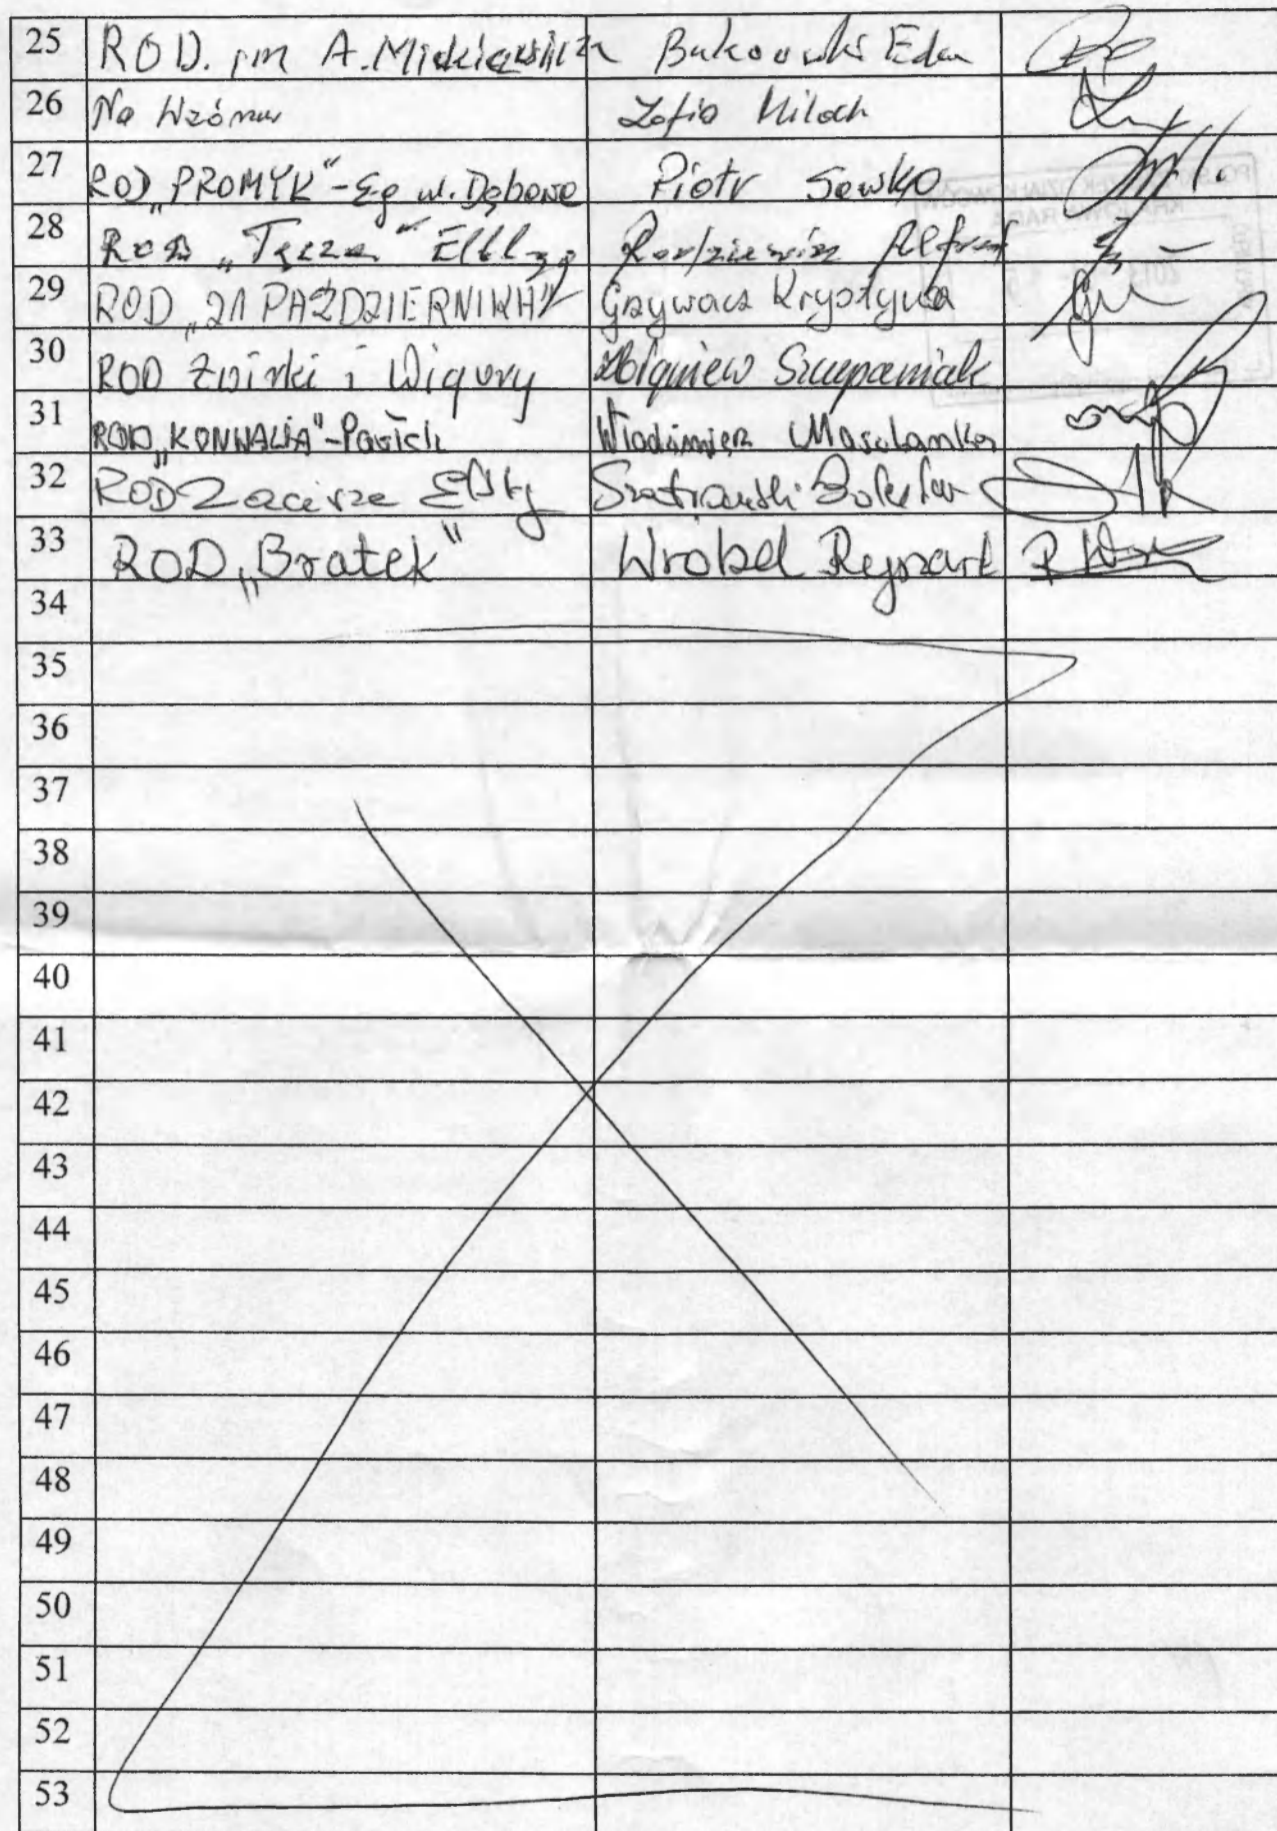 25 ROD. im A. Mickiewicza Bukowski Edm
26 Na Wzórzu Zofia Miloch
27 ROD „PROMYK” - Eg ul. Dębowa Piotr Sawko
28 ROD „Tęcza” Elbląg Rodziewicz Alfred
29 ROD „21 PAŹDZIERNIKA” Grzywacz Krystyna
30 ROD Żwirki i Wigury Zbigniew Szczepaniak
31 ROD „KONWALIA” - Włodzimierz
32 ROD Zacisze Elbląg Bolesław
33 ROD „Bratek” Wróbel Ryszard
34
35
36
37
38
39
40
41
42
43
44
45
46
47
48
49
50
51
52
53